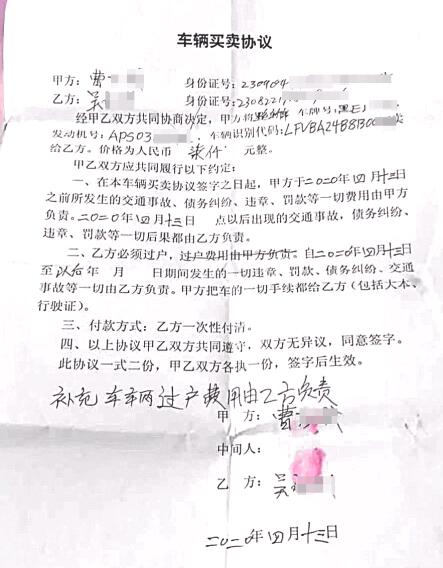 车辆买卖协议
甲方：曹 身份证号：230904
乙方：吴 身份证号：2308221
经甲乙双方共同协商决定，甲方将 车牌号：黑EJ
发动机号：APS03 车辆识别代码：LFVBA24B8130 卖
给乙方。价格为人民币 柒仟 元整。
甲乙双方应共同履行以下约定：
一、在本车辆买卖协议签字之日起，甲方于二0二0年四月十三日
之前所发生的交通事故、债务纠纷、违章、罚款等一切费用由甲方
负责。二0二0年四月十三日 点以后出现的交通事故，债务纠纷、
违章、罚款等一切后果都由乙方负责。
二、乙方必须过户，过户费用由甲方负责。自二0二0年四月十三日
至以后年 月 日期间发生的一切违章、罚款、债务纠纷、交通
事故等一切由乙方负责。甲方把车的一切手续都给乙方（包括大本、
行驶证）。
三、付款方式：乙方一次性付清。
四、以上协议甲乙双方共同遵守，双方无异议，同意签字。
此协议一式二份，甲乙双方各执一份，签字后生效。
补充 车辆过户费用由乙方负责
甲 方：曹
中间人：
乙 方：吴
二0二0年四月十三日